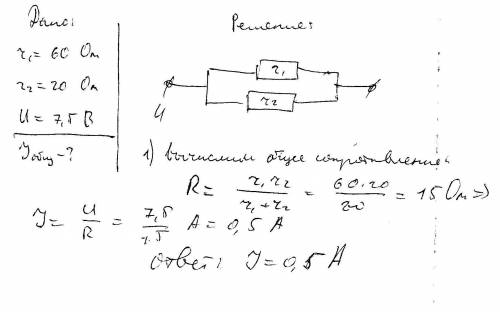 Дано:
r₁ = 60 Ом
r₂ = 20 Ом
U = 7,5 В
Jобщ - ?
Решение:
r₁
r₂
U
1) вычислим общее сопротивление:
R = r₁r₂ / r₁+r₂ = 60·20 / 80 = 15 Ом ⇒
J = U / R = 7,5 / 15 А = 0,5 А
ответ: J = 0,5 А